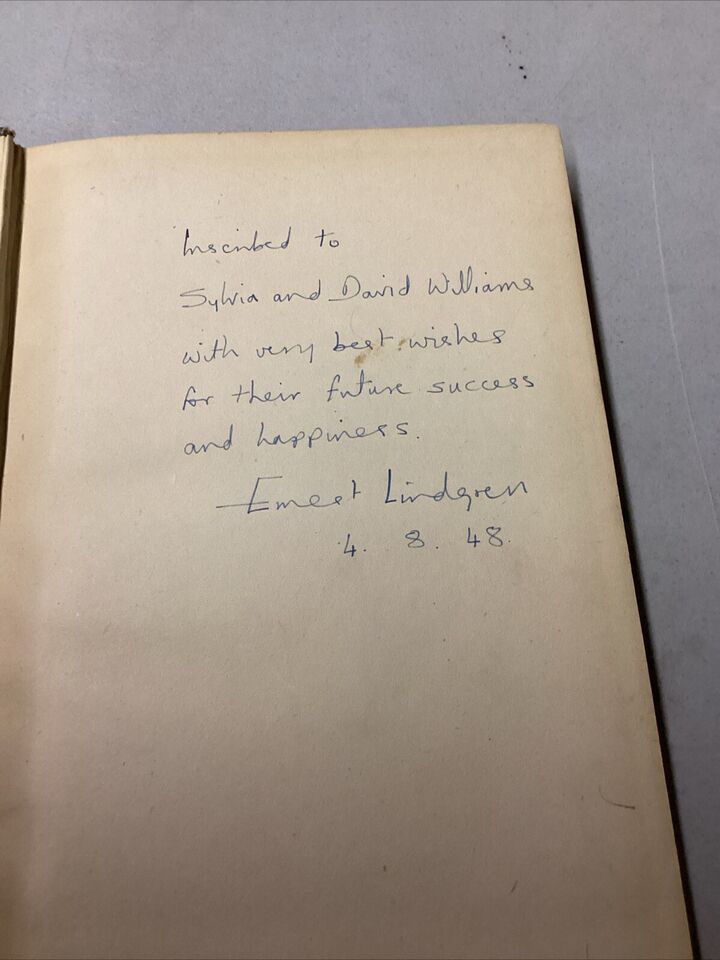 Inscribed to
Sylvia and David Williams
with very best wishes
for their future success
and happiness.
Ernest Lindgren
4. 8. 48.